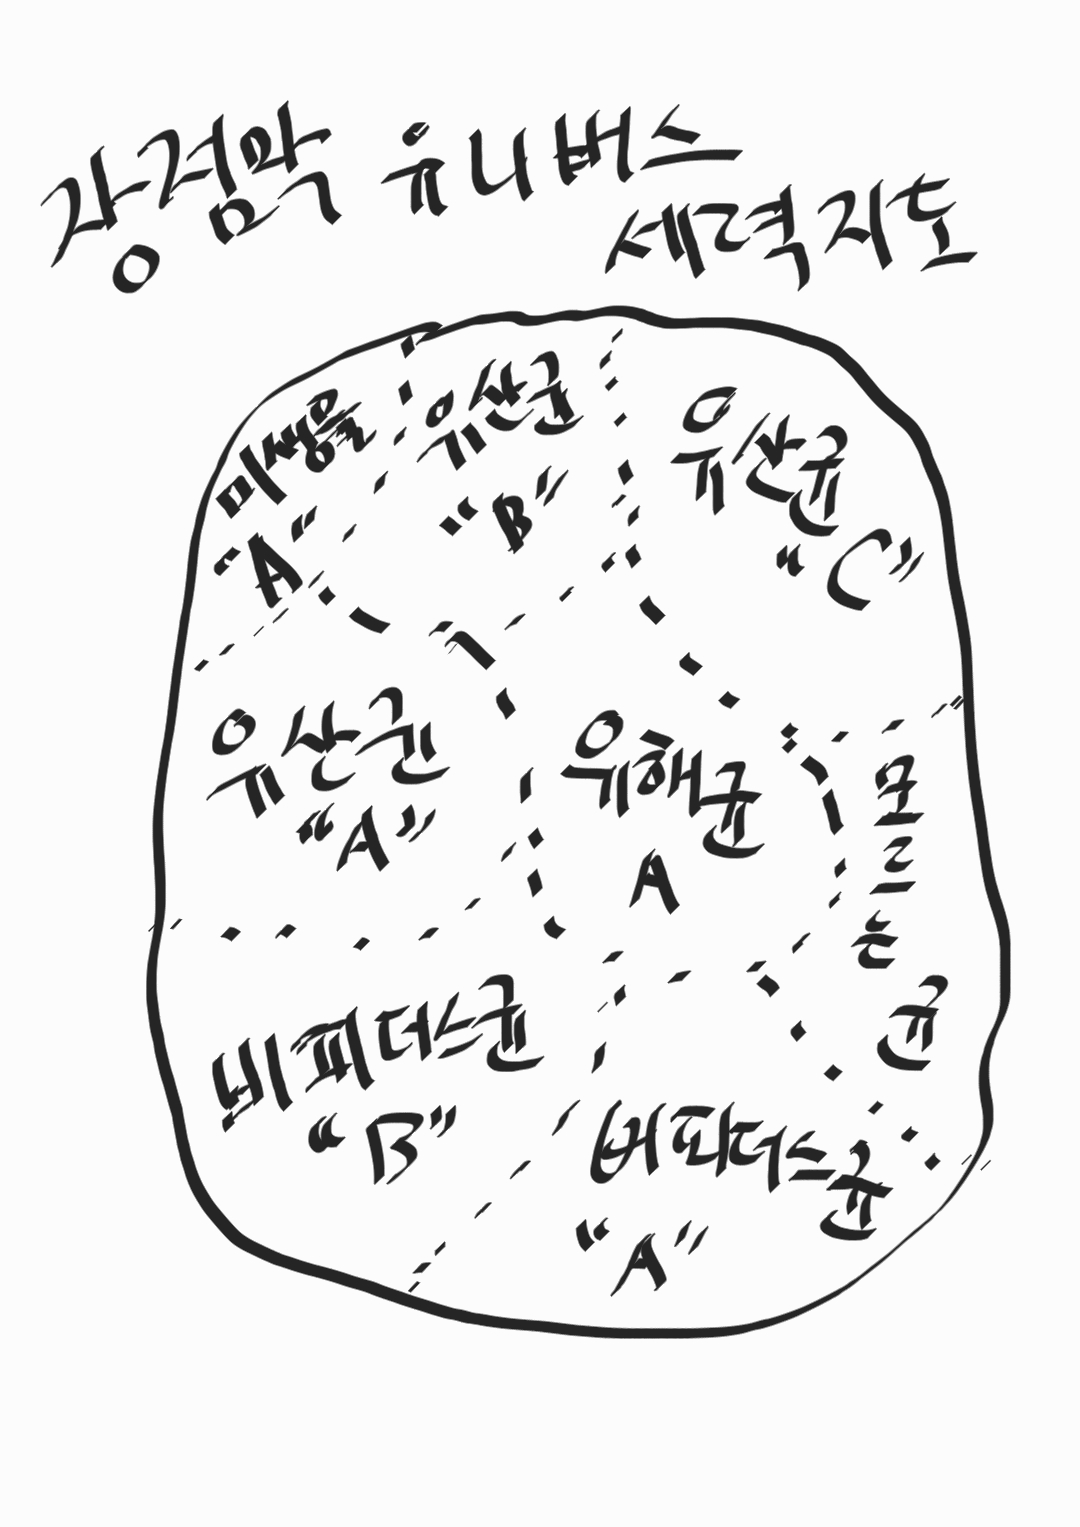 장점막 유니버스
세력지도
미생물
"A"
유산균
"B"
유산균
"C"
유산균
"A"
유해균
A
모르는
균
비피더스균
"B"
비피더스균
"A"